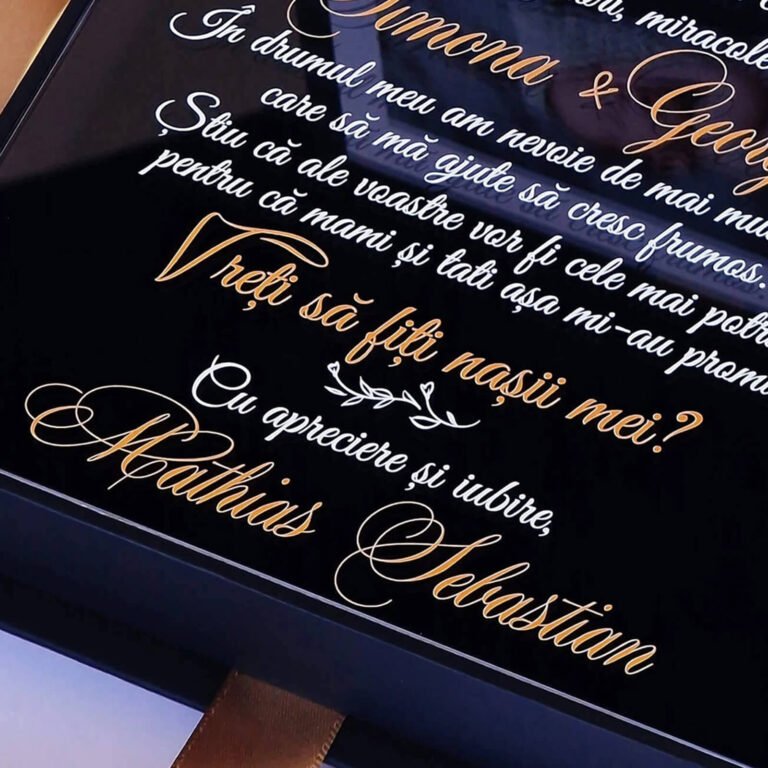 miracole
Simona & Georg
În drumul meu am nevoie de mai mu
care să mă ajute să cresc frumos.
Știu că ale voastre vor fi cele mai potri
pentru că mami și tati așa mi-au promi
Vreți să fiți nașii mei?
Cu apreciere și iubire,
Mathias Sebastian